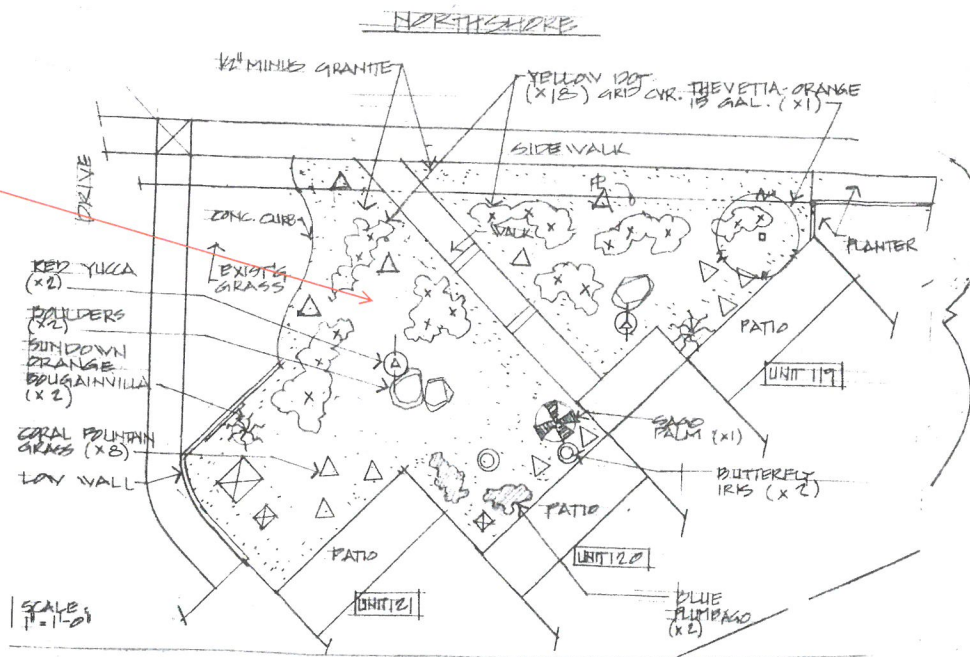 NORTHSHORE
1/2" MINUS GRANITE
YELLOW DOT
(x18) GRD CVR.
THEVETTIA-ORANGE
15 GAL. (x1)
SIDEWALK
DRIVE
CONC. CURB
WALK
PLANTER
EXIST'G
GRASS
RED YUCCA
(x2)
BOULDERS
(x2)
SUNDOWN
ORANGE
BOUGAINVILLA
(x2)
CORAL FOUNTAIN
GRASS (x8)
LOW WALL
PATIO
UNIT 119
SAGO
PALM (x1)
BUTTERFLY
IRIS (x2)
PATIO
UNIT 120
PATIO
UNIT 121
BLUE
PLUMBAGO
(x2)
SCALE:
1" = 1'-0"